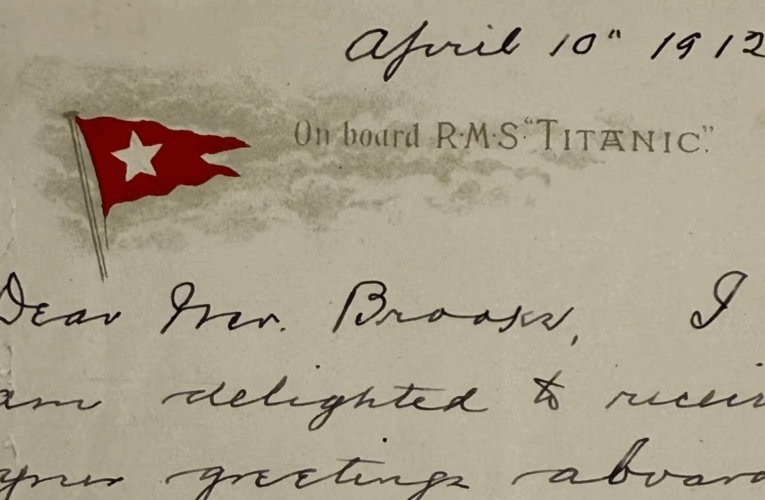 April 10" 1912
On board R·M·S·"TITANIC".
Dear Mr. Brooks, I
am delighted to receiv
your greetings aboard